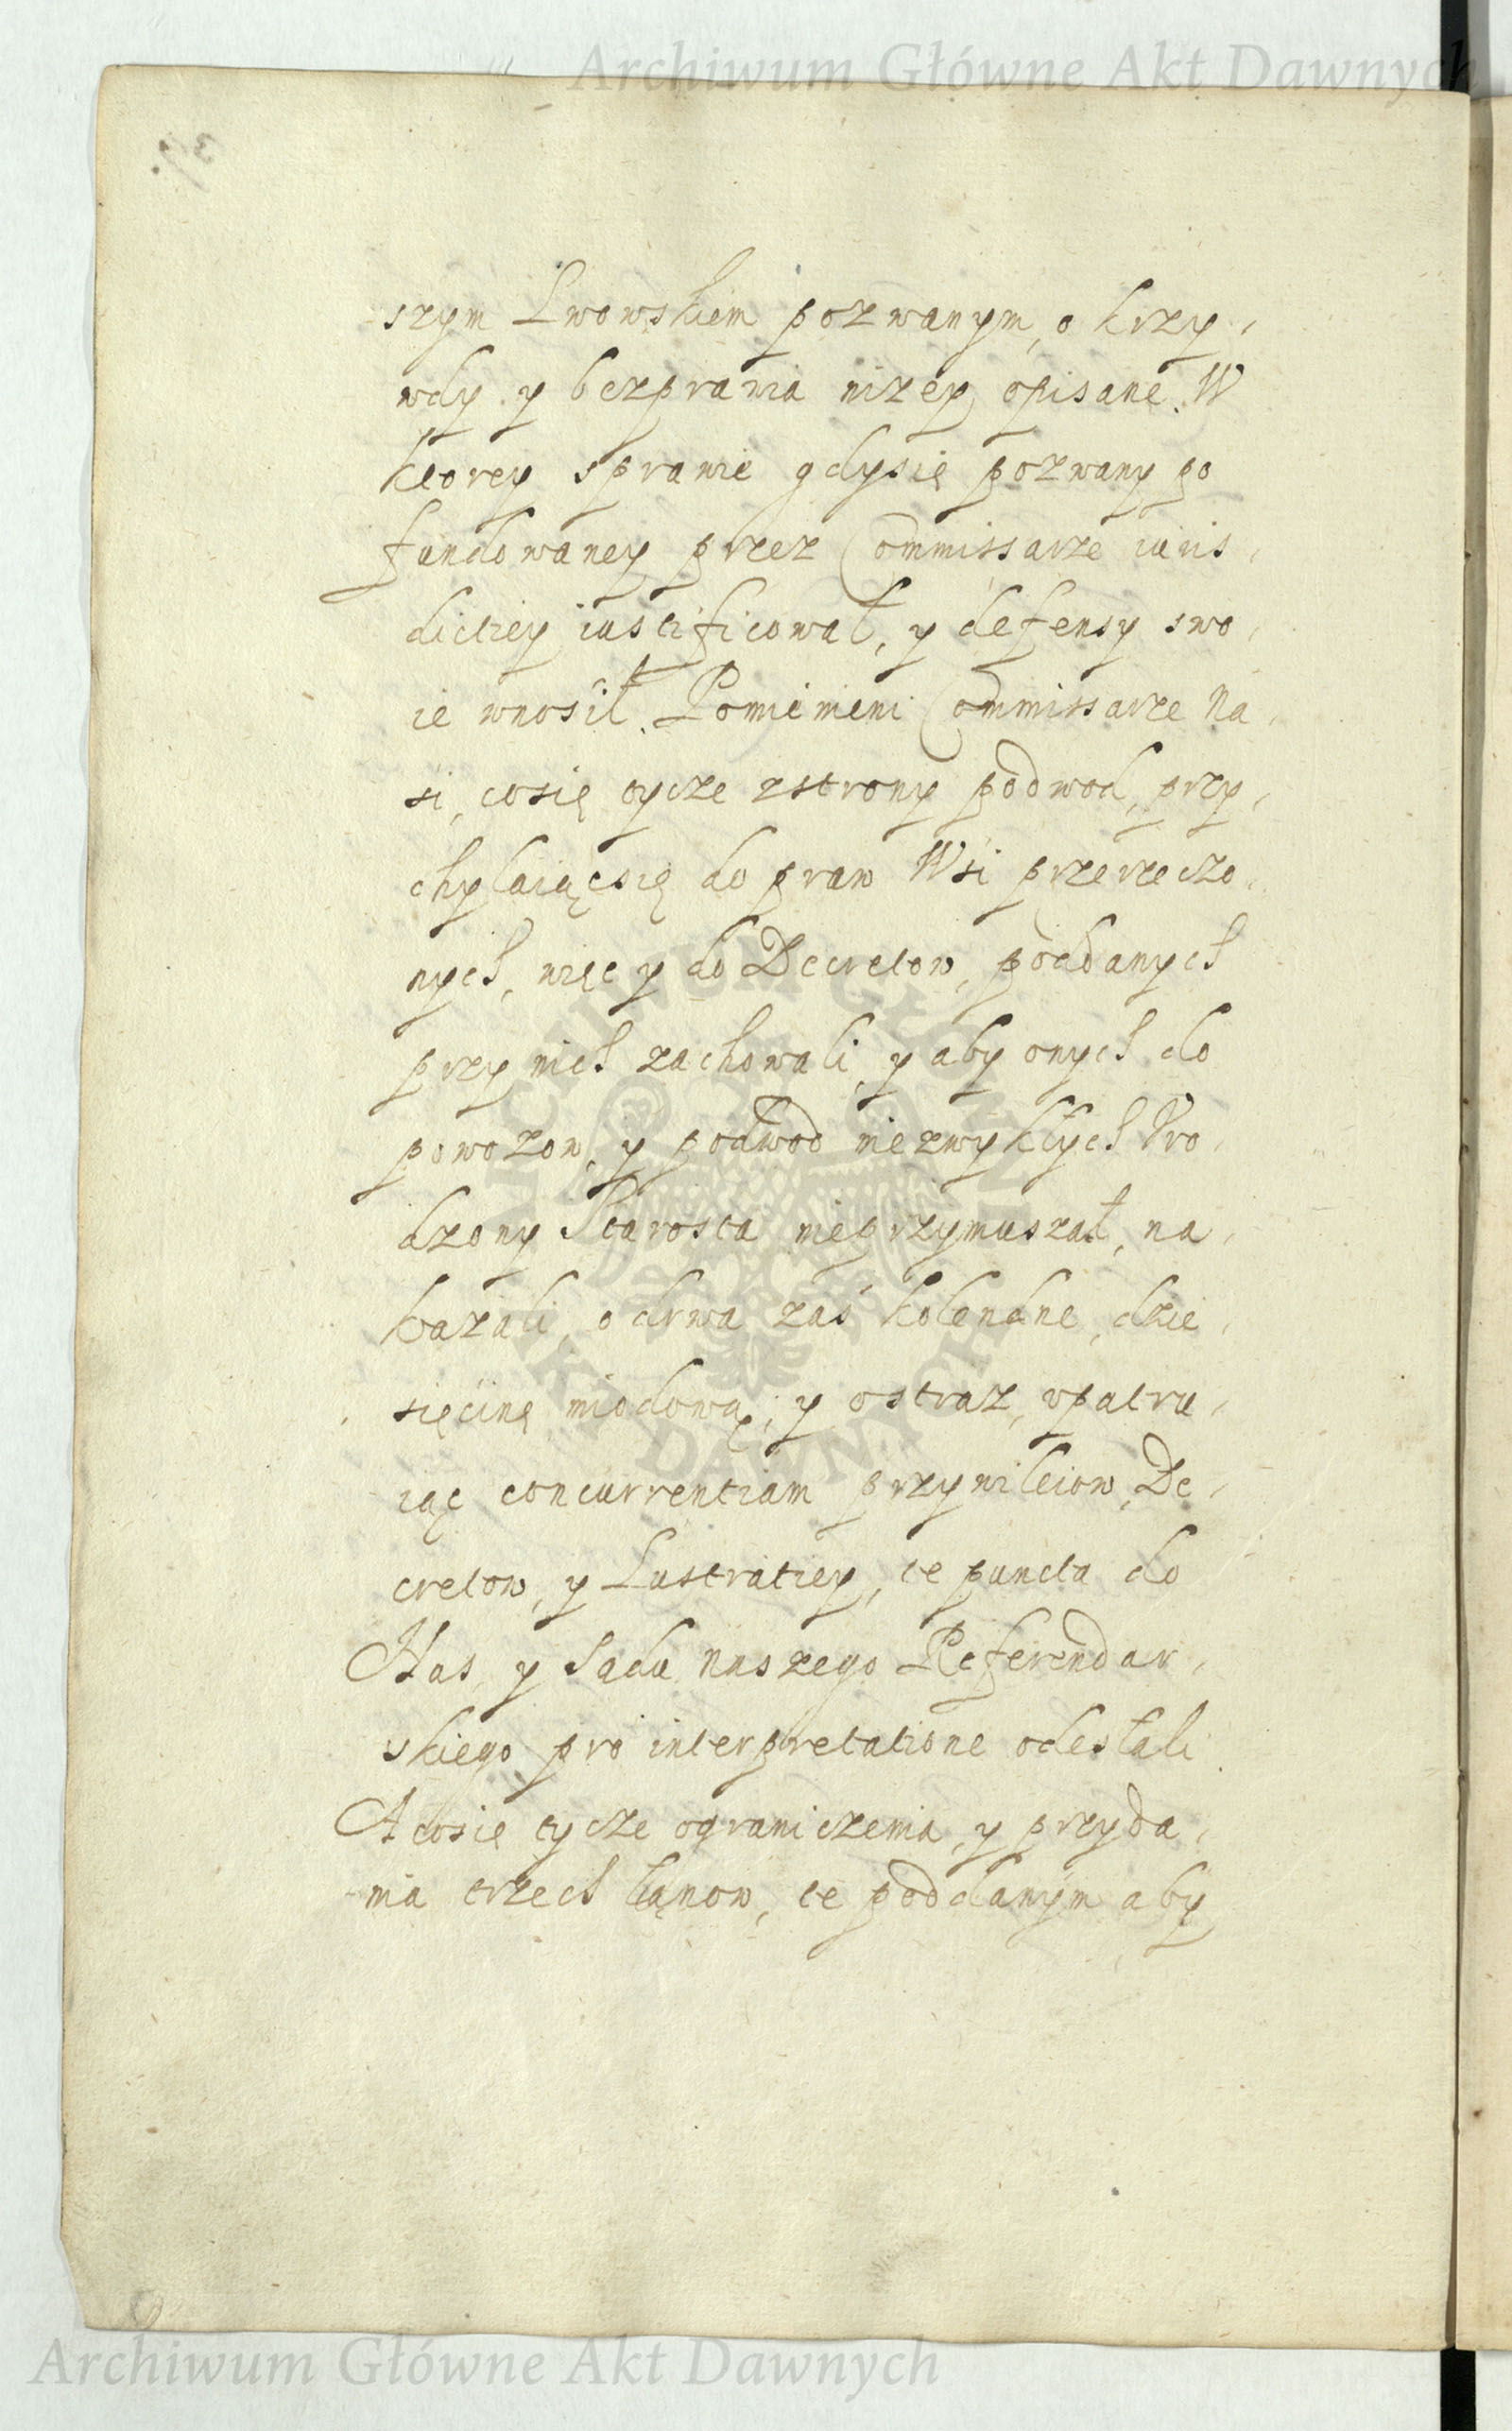 Archiwum Główne Akt Dawnych
szym Lwowskiem pozwanym, o krzy,
wdy y bezprawia nizey opisane. W
ktorey sprawie gdysię pozwany po
fundowaney przez Commissarze iuris,
dictiey iustificował, y defensy swo,
ie wnosił. Pomienieni Commissarze Na,
si, cosię tycze zstrony podwod, przy,
chylaiącsię do praw Wsi przerzeczo,
nych, więc y do Decretow, poddanych
przy nich zachowali, y aby onych do
powozow, y podwod niezwykłych Vro,
dzony Starosta nieprzymuszał, na,
kazali, o drwa zaś kolendne, dzie,
sięcinę miodową, y ostraz, vpatru,
iąc concurrentiam przywileiow, De,
cretow, y Lustratiey, te puncta do
Nas, y Sadu naszego Referendar,
skiego pro interpretatione odesłali.
A cosie tycze ograniczenia, y przyda,
nia trzech łąnow, te poddanym aby
ARCHIWUM GŁÓWNE AKT DAWNYCH
Archiwum Główne Akt Dawnych